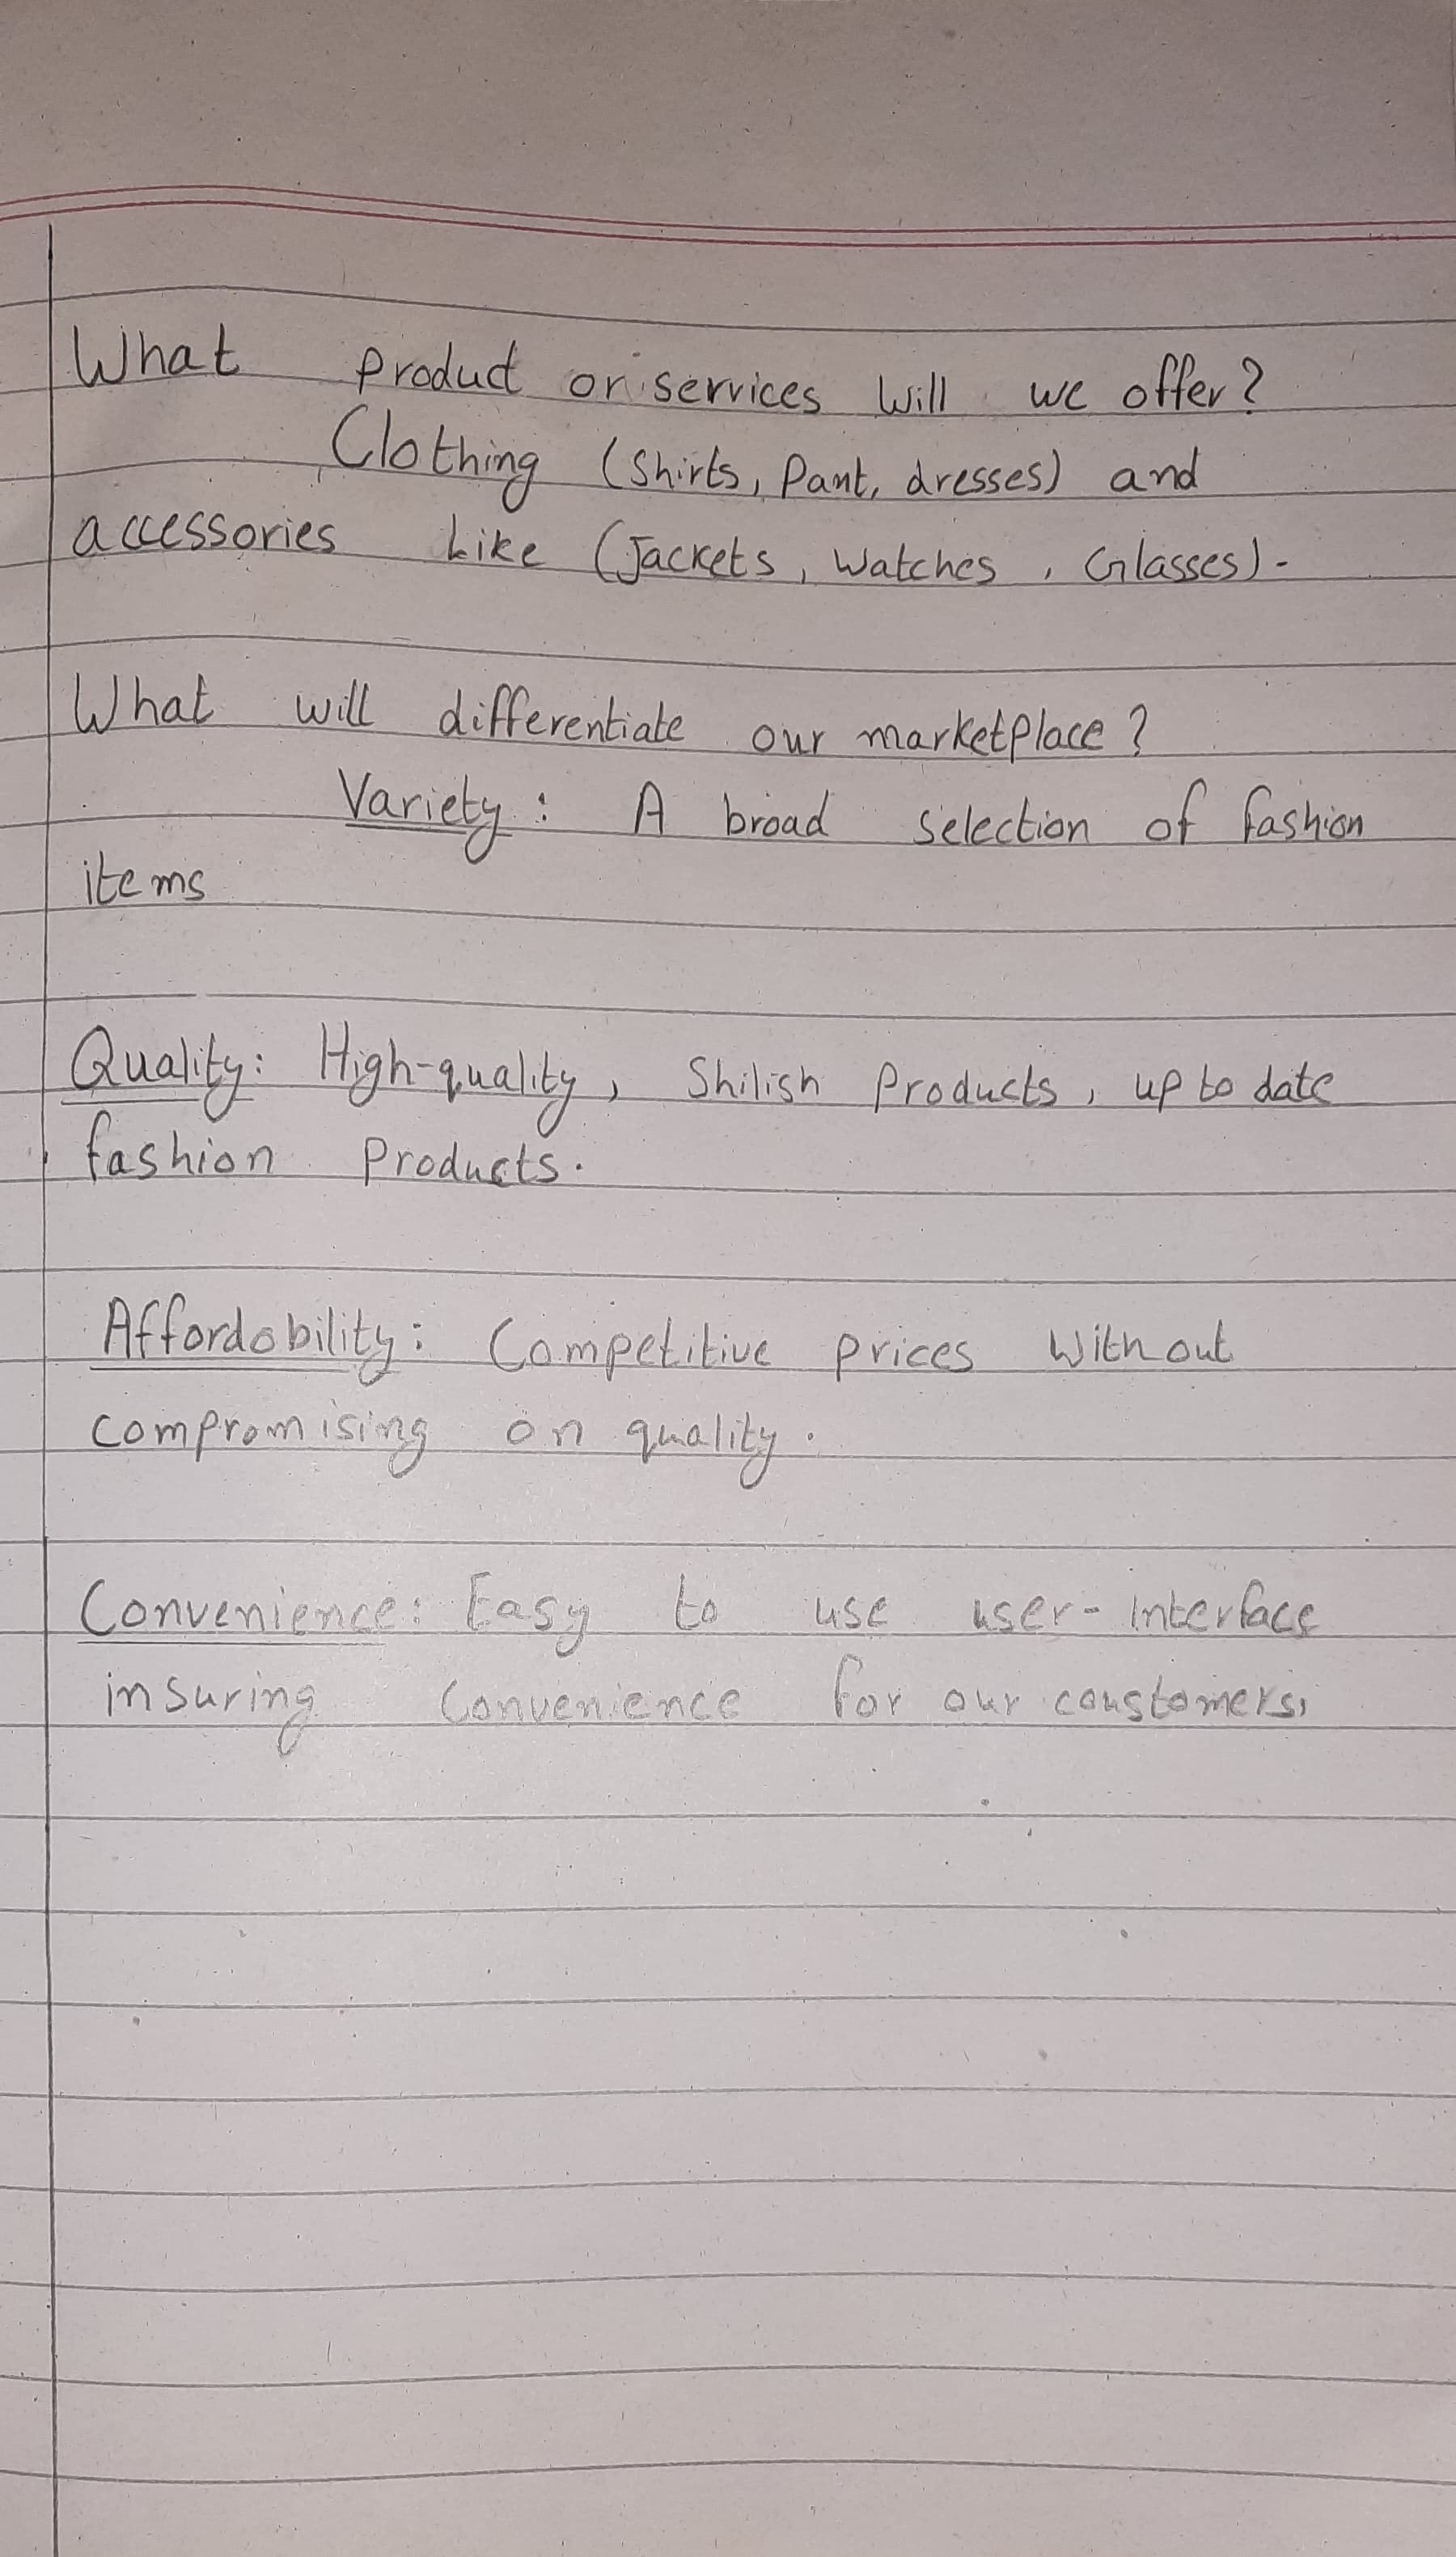 What product or services will we offer?
Clothing (Shirts, Pant, dresses) and
accessories Like (Jackets, Watches, Glasses).
What will differentiate our marketplace?
Variety: A broad selection of fashion
items
Quality: High-quality, Shilish Products, up to date
fashion Products.
Affordobility: Competitive prices Without
compromising on quality.
Convenience: Easy to use user-Interface
insuring Convenience for our coustomers,